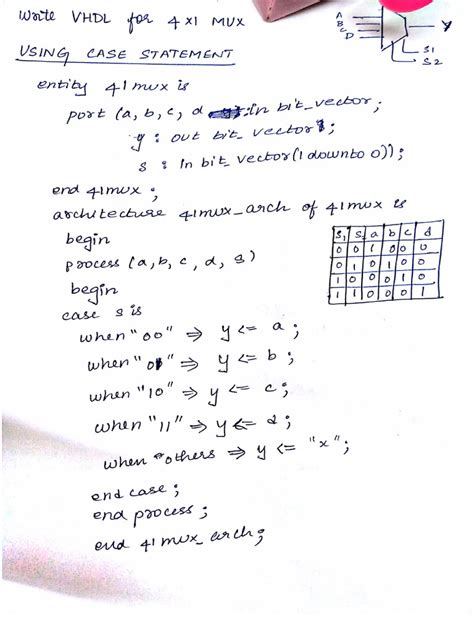 Write VHDL for 4x1 MUX
USING CASE STATEMENT
A
B
C
D
Y
S1
S2
entity 41mux is
port (a, b, c, d : in bit_vector;
y : out bit_vector;
s : in bit_vector(1 downto 0));
end 41mux;
architecture 41mux_arch of 41mux is
begin
process (a, b, c, d, s)
begin
case s is
when "00" => y <= a;
when "01" => y <= b;
when "10" => y <= c;
when "11" => y <= d;
when others => y <= "x";
end case;
end process;
end 41mux_arch;
S1 S2 a b c d
0 0 1 0 0 0
0 1 0 1 0 0
1 0 0 0 1 0
1 1 0 0 0 1